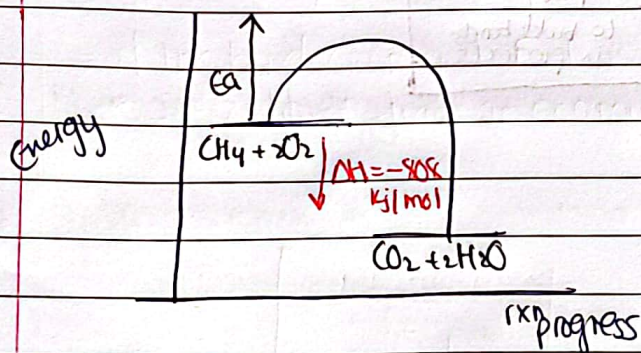 Ea
Energy
CH4 + 2O2
ΔH=-808
kj/mol
CO2 + 2H2O
rxn progress